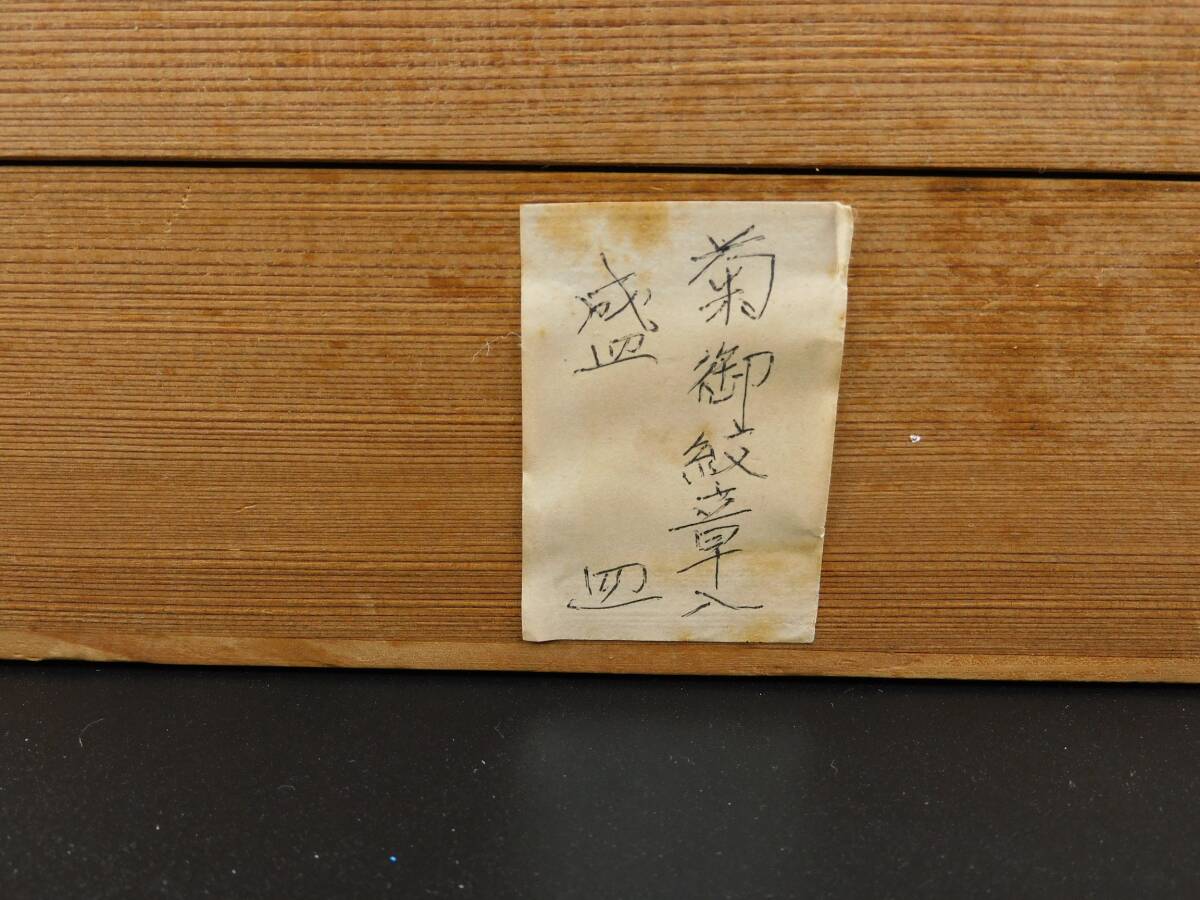 菊御紋章入
盛皿